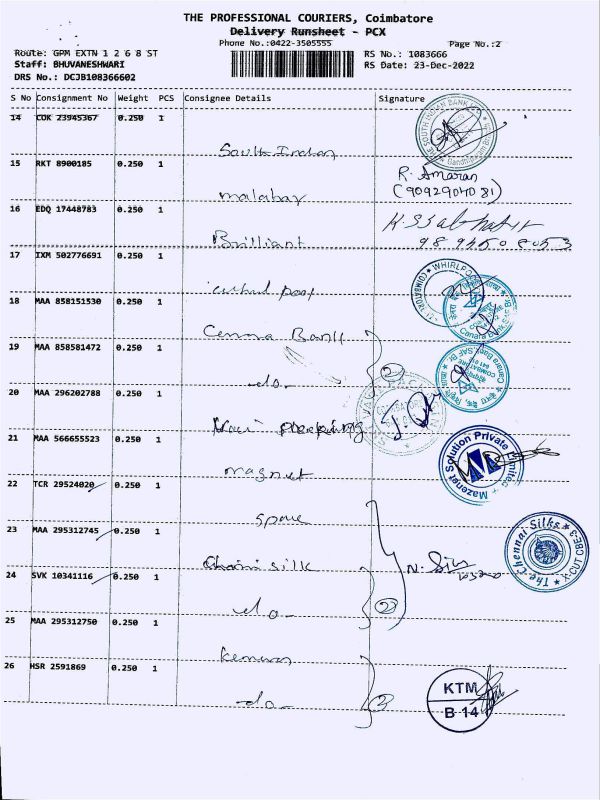 THE PROFESSIONAL COURIERS, Coimbatore
Delivery Runsheet - PCX
Phone No.:0422-3505555
Page No.:2
Route: GPM EXTN 1 2 6 8 ST
RS No.: 1083666
Staff: BHUVANESHWARI
RS Date: 23-Dec-2022
DRS No.: DCJB108366602
S No Consignment No Weight PCS Consignee Details Signature
14 COK 23945367 0.250 1
South Indian
15 RKT 8900185 0.250 1
R. Amaran
(9092904081)
malabar
16 EDQ 17448783 0.250 1
Brilliant
17 IXM 502776691 0.250 1
WHIRLPOOL
18 MAA 858151530 0.250 1
Canara Bank
19 MAA 858581472 0.250 1
-do-
2
20 MAA 296202788 0.250 1
21 MAA 566655523 0.250 1
Mazenet Solution Private Limited
magnet
22 TCR 29524020 0.250 1
23 MAA 295312745 0.250 1
The Chennai Silks
X-CUT CBE-3
silk
24 SVK 10341116 0.250 1
do-
2
25 MAA 295312750 0.250 1
26 HSR 2591869 0.250 1
-do-
2
KTM
B 14